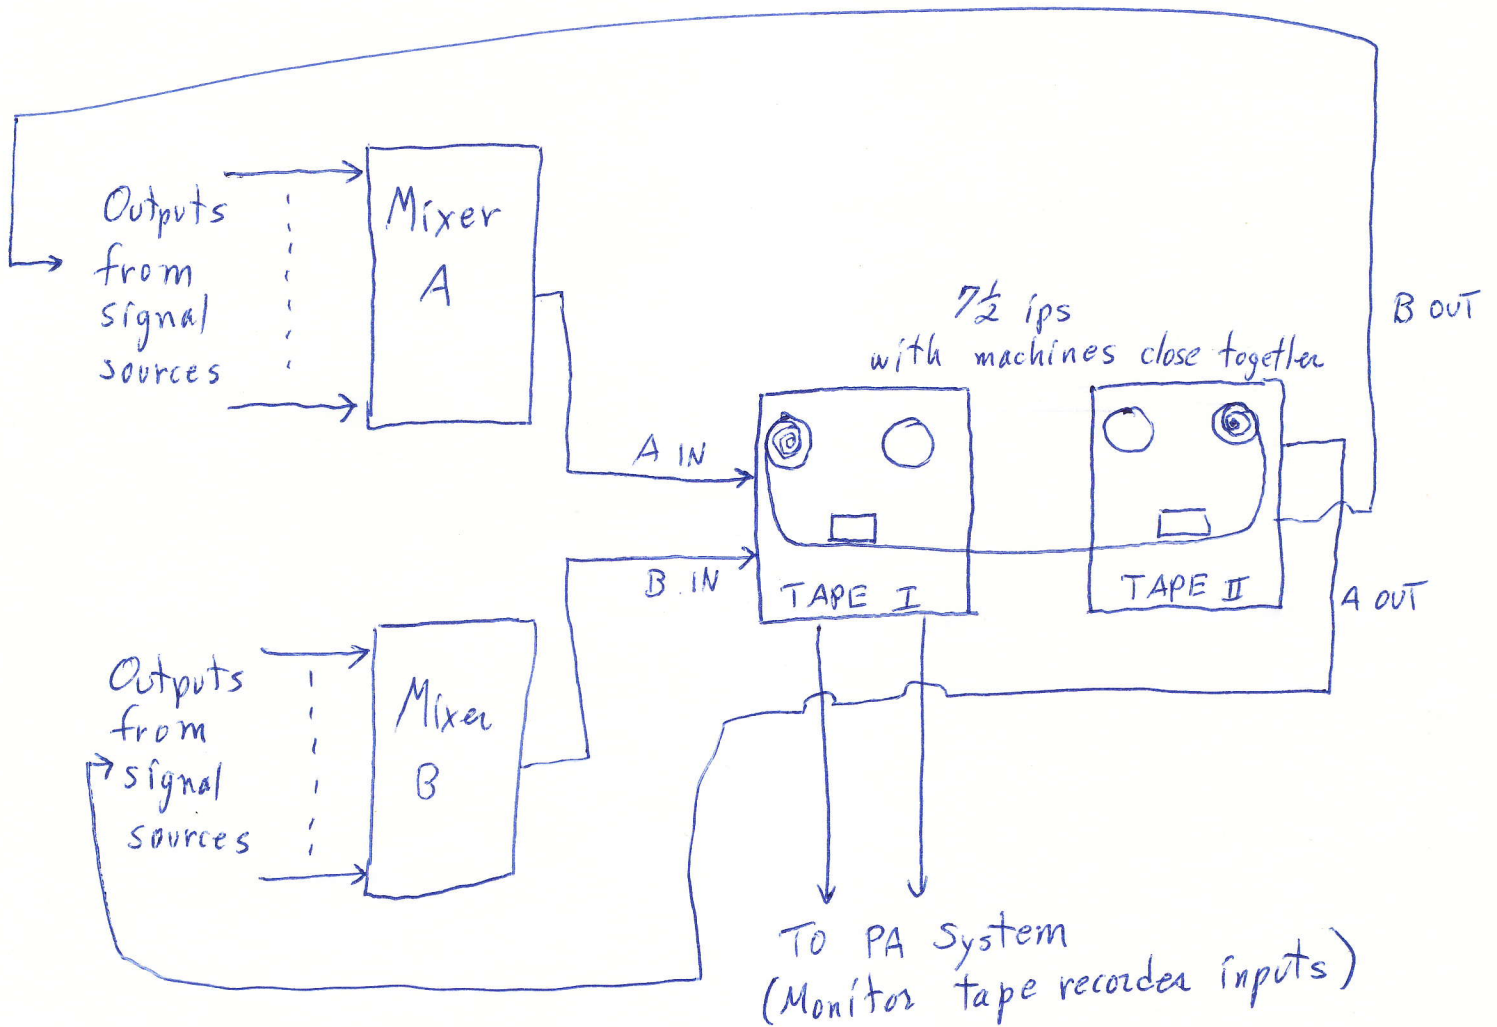 Outputs
from
signal
sources
Mixer
A
7½ ips
with machines close together
B OUT
A IN
B IN
TAPE I
TAPE II
A OUT
Outputs
from
signal
sources
Mixer
B
TO PA System
(Monitor tape recorder inputs)